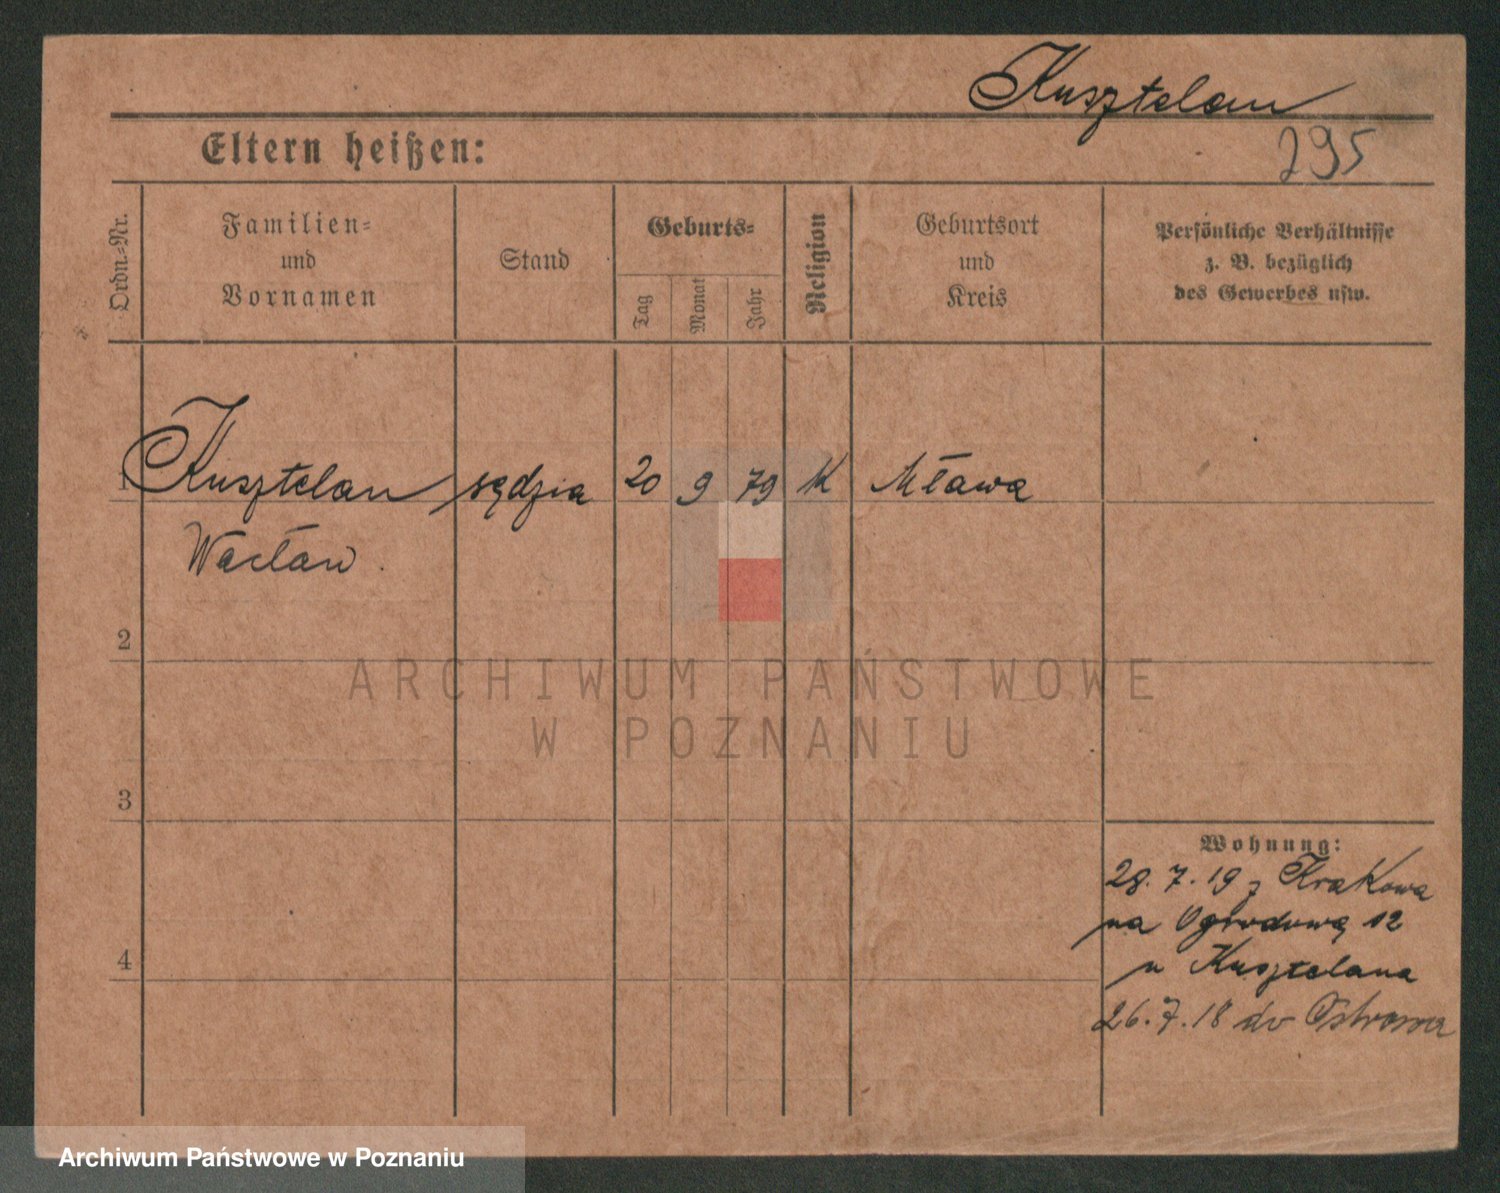 Kusztelan
295
Eltern heißen:
Ordn.-Nr.
Familien-
und
Vornamen
Stand
Geburts-
Tag
Monat
Jahr
Religion
Geburtsort
und
Kreis
Persönliche Verhältnisse
z. B. bezüglich
des Gewerbes usw.
1 Kusztelan sędzia 20 9 79 K Mława
Wacław
2
ARCHIWUM PAŃSTWOWE
W POZNANIU
3
Wohnung:
28. 7. 19 z Krakowa
na Ogrodową 12
u Kusztelana
4
26. 7. 18 do Ostrowa
Archiwum Państwowe w Poznaniu